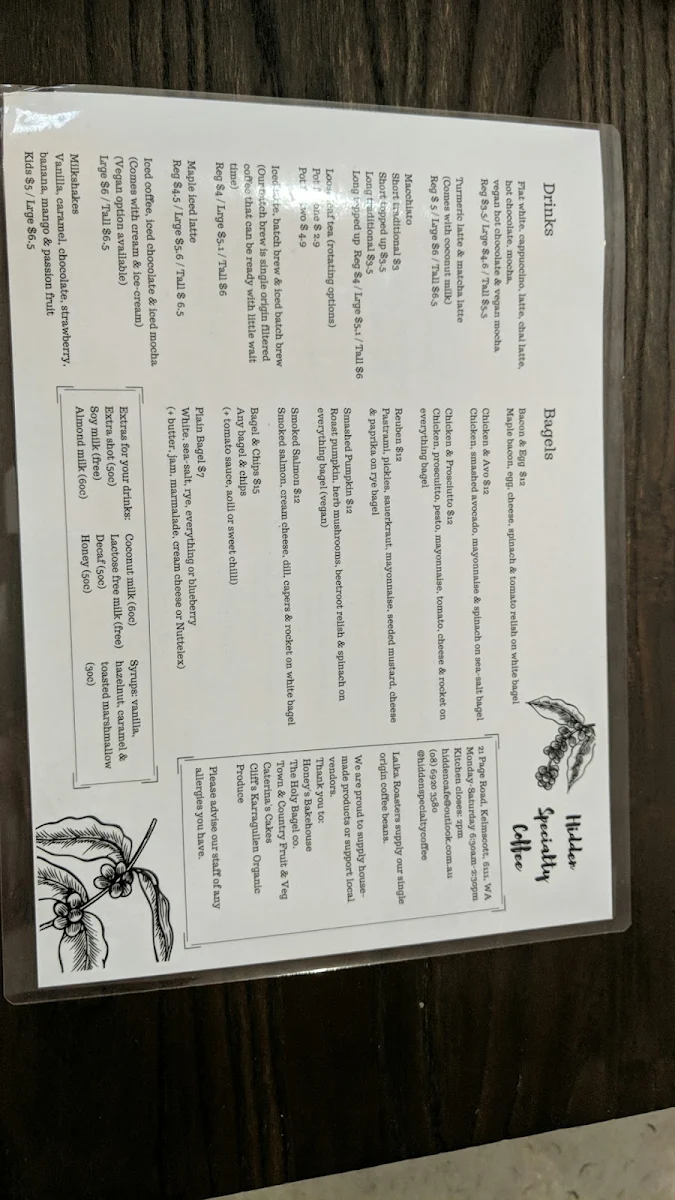 Drinks
Flat white, cappuccino, latte, chai latte,
hot chocolate, mocha,
vegan hot chocolate & vegan mocha
Reg $3.5/ Lrge $4.6 / Tall $5.5
Turmeric latte & matcha latte
(Comes with coconut milk)
Reg $ 5 / Lrge $6 / Tall $6.5
Macchiato
Short traditional $3
Short topped up $3.5
Long traditional $3.5
Long topped up Reg $4 / Lrge $5.1 / Tall $6
leaf tea (rotating options)
Pot one $ 2.9
Pot two $ 4.9
Iced batch brew & iced batch brew
(Our batch brew is single origin filtered
coffee that can be ready with little wait
time)
Reg $4 / Lrge $5.1 / Tall $6
Maple iced latte
Reg $4.5 / Lrge $5.6 / Tall $ 6.5
Iced coffee, iced chocolate & iced mocha
(Comes with cream & ice-cream)
(Vegan option available)
Lrge $6 / Tall $6.5
Milkshakes
Vanilla, caramel, chocolate, strawberry,
banana, mango & passion fruit
Kids $5 / Lrge $6.5
Bagels
Bacon & Egg $12
Maple bacon, egg, cheese, spinach & tomato relish on white bagel
Chicken & Avo $12
Chicken, smashed avocado, mayonnaise & spinach on sea-salt bagel
Chicken & Prosciutto $12
Chicken, proscuitto, pesto, mayonnaise, tomato, cheese & rocket on
everything bagel
Reuben $12
Pastrami, pickles, sauerkraut, mayonnaise, seeded mustard, cheese
& paprika on rye bagel
Smashed Pumpkin $12
Roast pumpkin, herb mushrooms, beetroot relish & spinach on
everything bagel (vegan)
Smoked Salmon $12
Smoked salmon, cream cheese, dill, capers & rocket on white bagel
Bagel & Chips $15
Any bagel & chips
(+ tomato sauce, aoili or sweet chilli)
Plain Bagel $7
White, sea-salt, rye, everything or blueberry
(+ butter, jam, marmalade, cream cheese or Nuttelex)
Extras for your drinks:
Extra shot (50c)
Soy milk (free)
Almond milk (60c)
Coconut milk (60c)
Lactose free milk (free)
Decaf (50c)
Honey (50c)
Syrups: vanilla,
hazelnut, caramel &
toasted marshmallow
(30c)
Hidden
Specialty
Coffee
21 Page Road, Kelmscott, 6111, WA
Monday-Saturday 6:30am-2:30pm
Kitchen closes: 2pm
hiddencafe@outlook.com.au
(08) 6920 3580
@hiddenspecialtycoffee
Laika Roasters supply our single
origin coffee beans.
We are proud to supply house-
made products or support local
vendors.
Thank you to:
Honey's Bakehouse
The Holy Bagel co.
Town & Country Fruit & Veg
Caterina's Cakes
Cliff's Karragullen Organic
Produce
Please advise our staff of any
allergies you have.